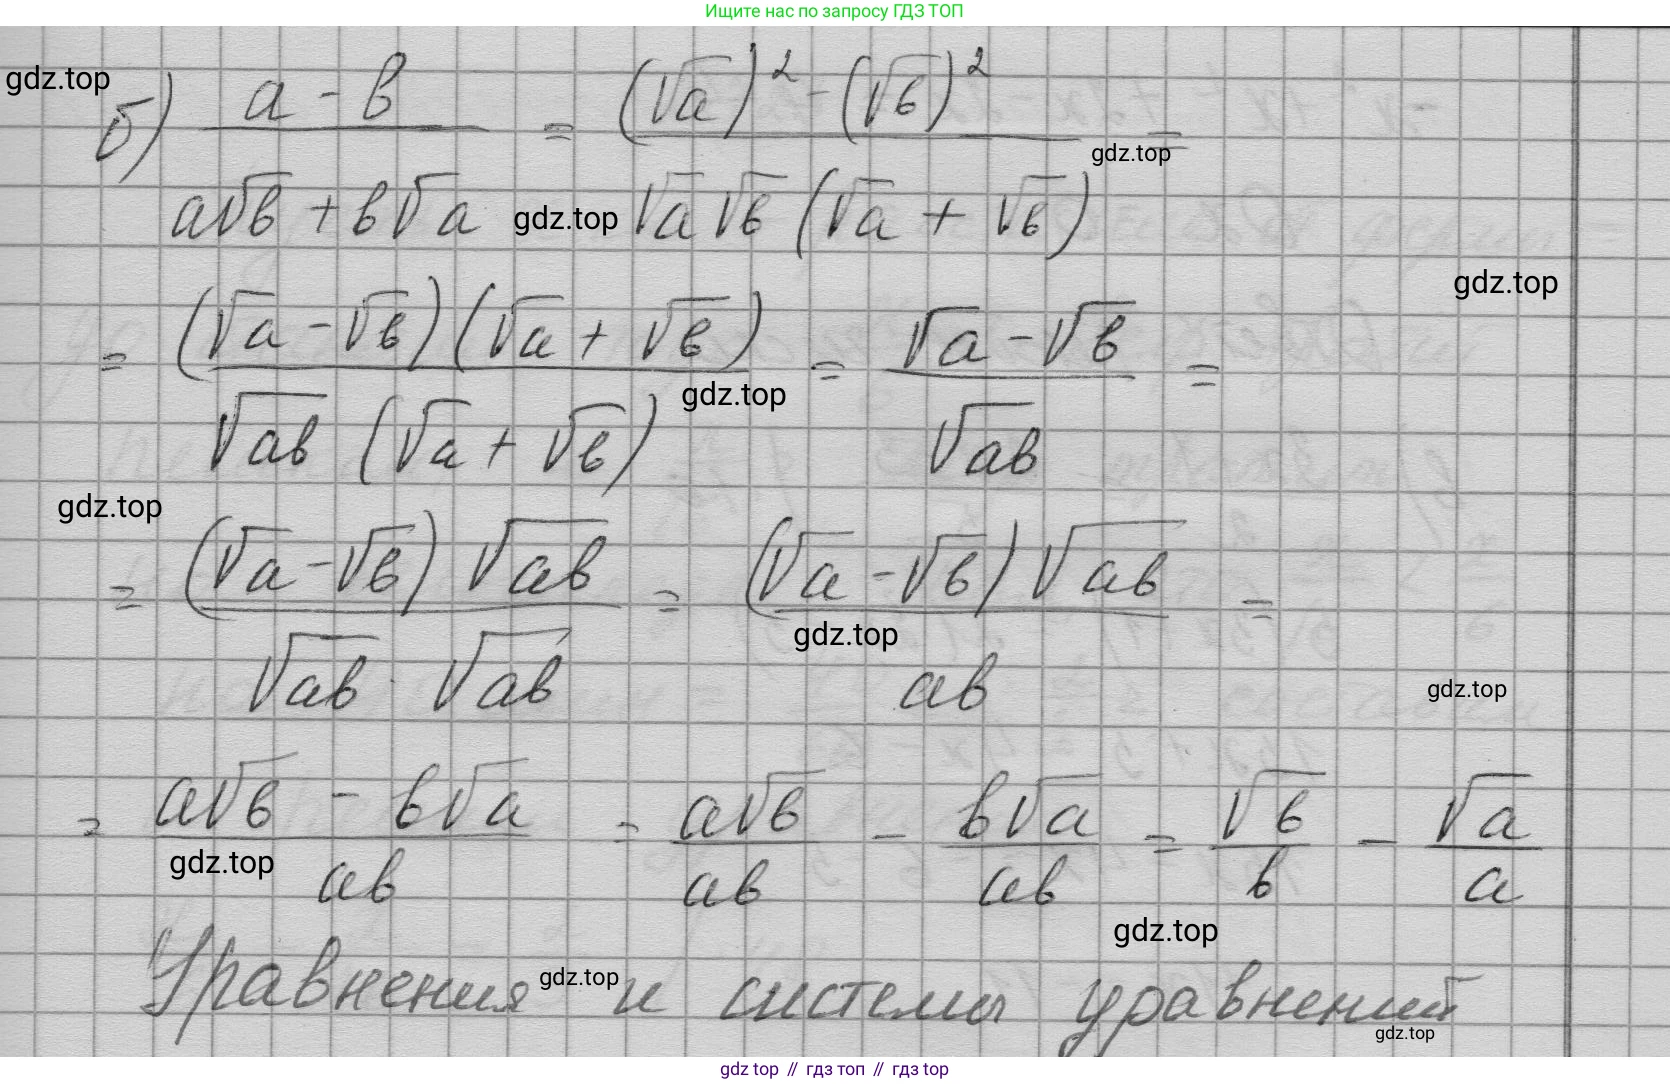 Ищите нас по запросу ГДЗ ТОП
gdz.top
б) (a - b)/(a√b + b√a) = ((√a)² - (√b)²)/(√a √b (√a + √b)) =
gdz.top
gdz.top
gdz.top
= ((√a - √b)(√a + √b))/(√ab (√a + √b)) = (√a - √b)/√ab =
gdz.top
gdz.top
= ((√a - √b) √ab)/(√ab · √ab) = ((√a - √b) √ab)/ab =
gdz.top
gdz.top
= (a√b - b√a)/ab = a√b/ab - b√a/ab = √b/b - √a/a
gdz.top
gdz.top
Уравнения и системы уравнений
gdz.top
gdz.top
gdz top // гдз топ // гдз top